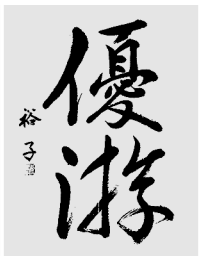 優游
裕子